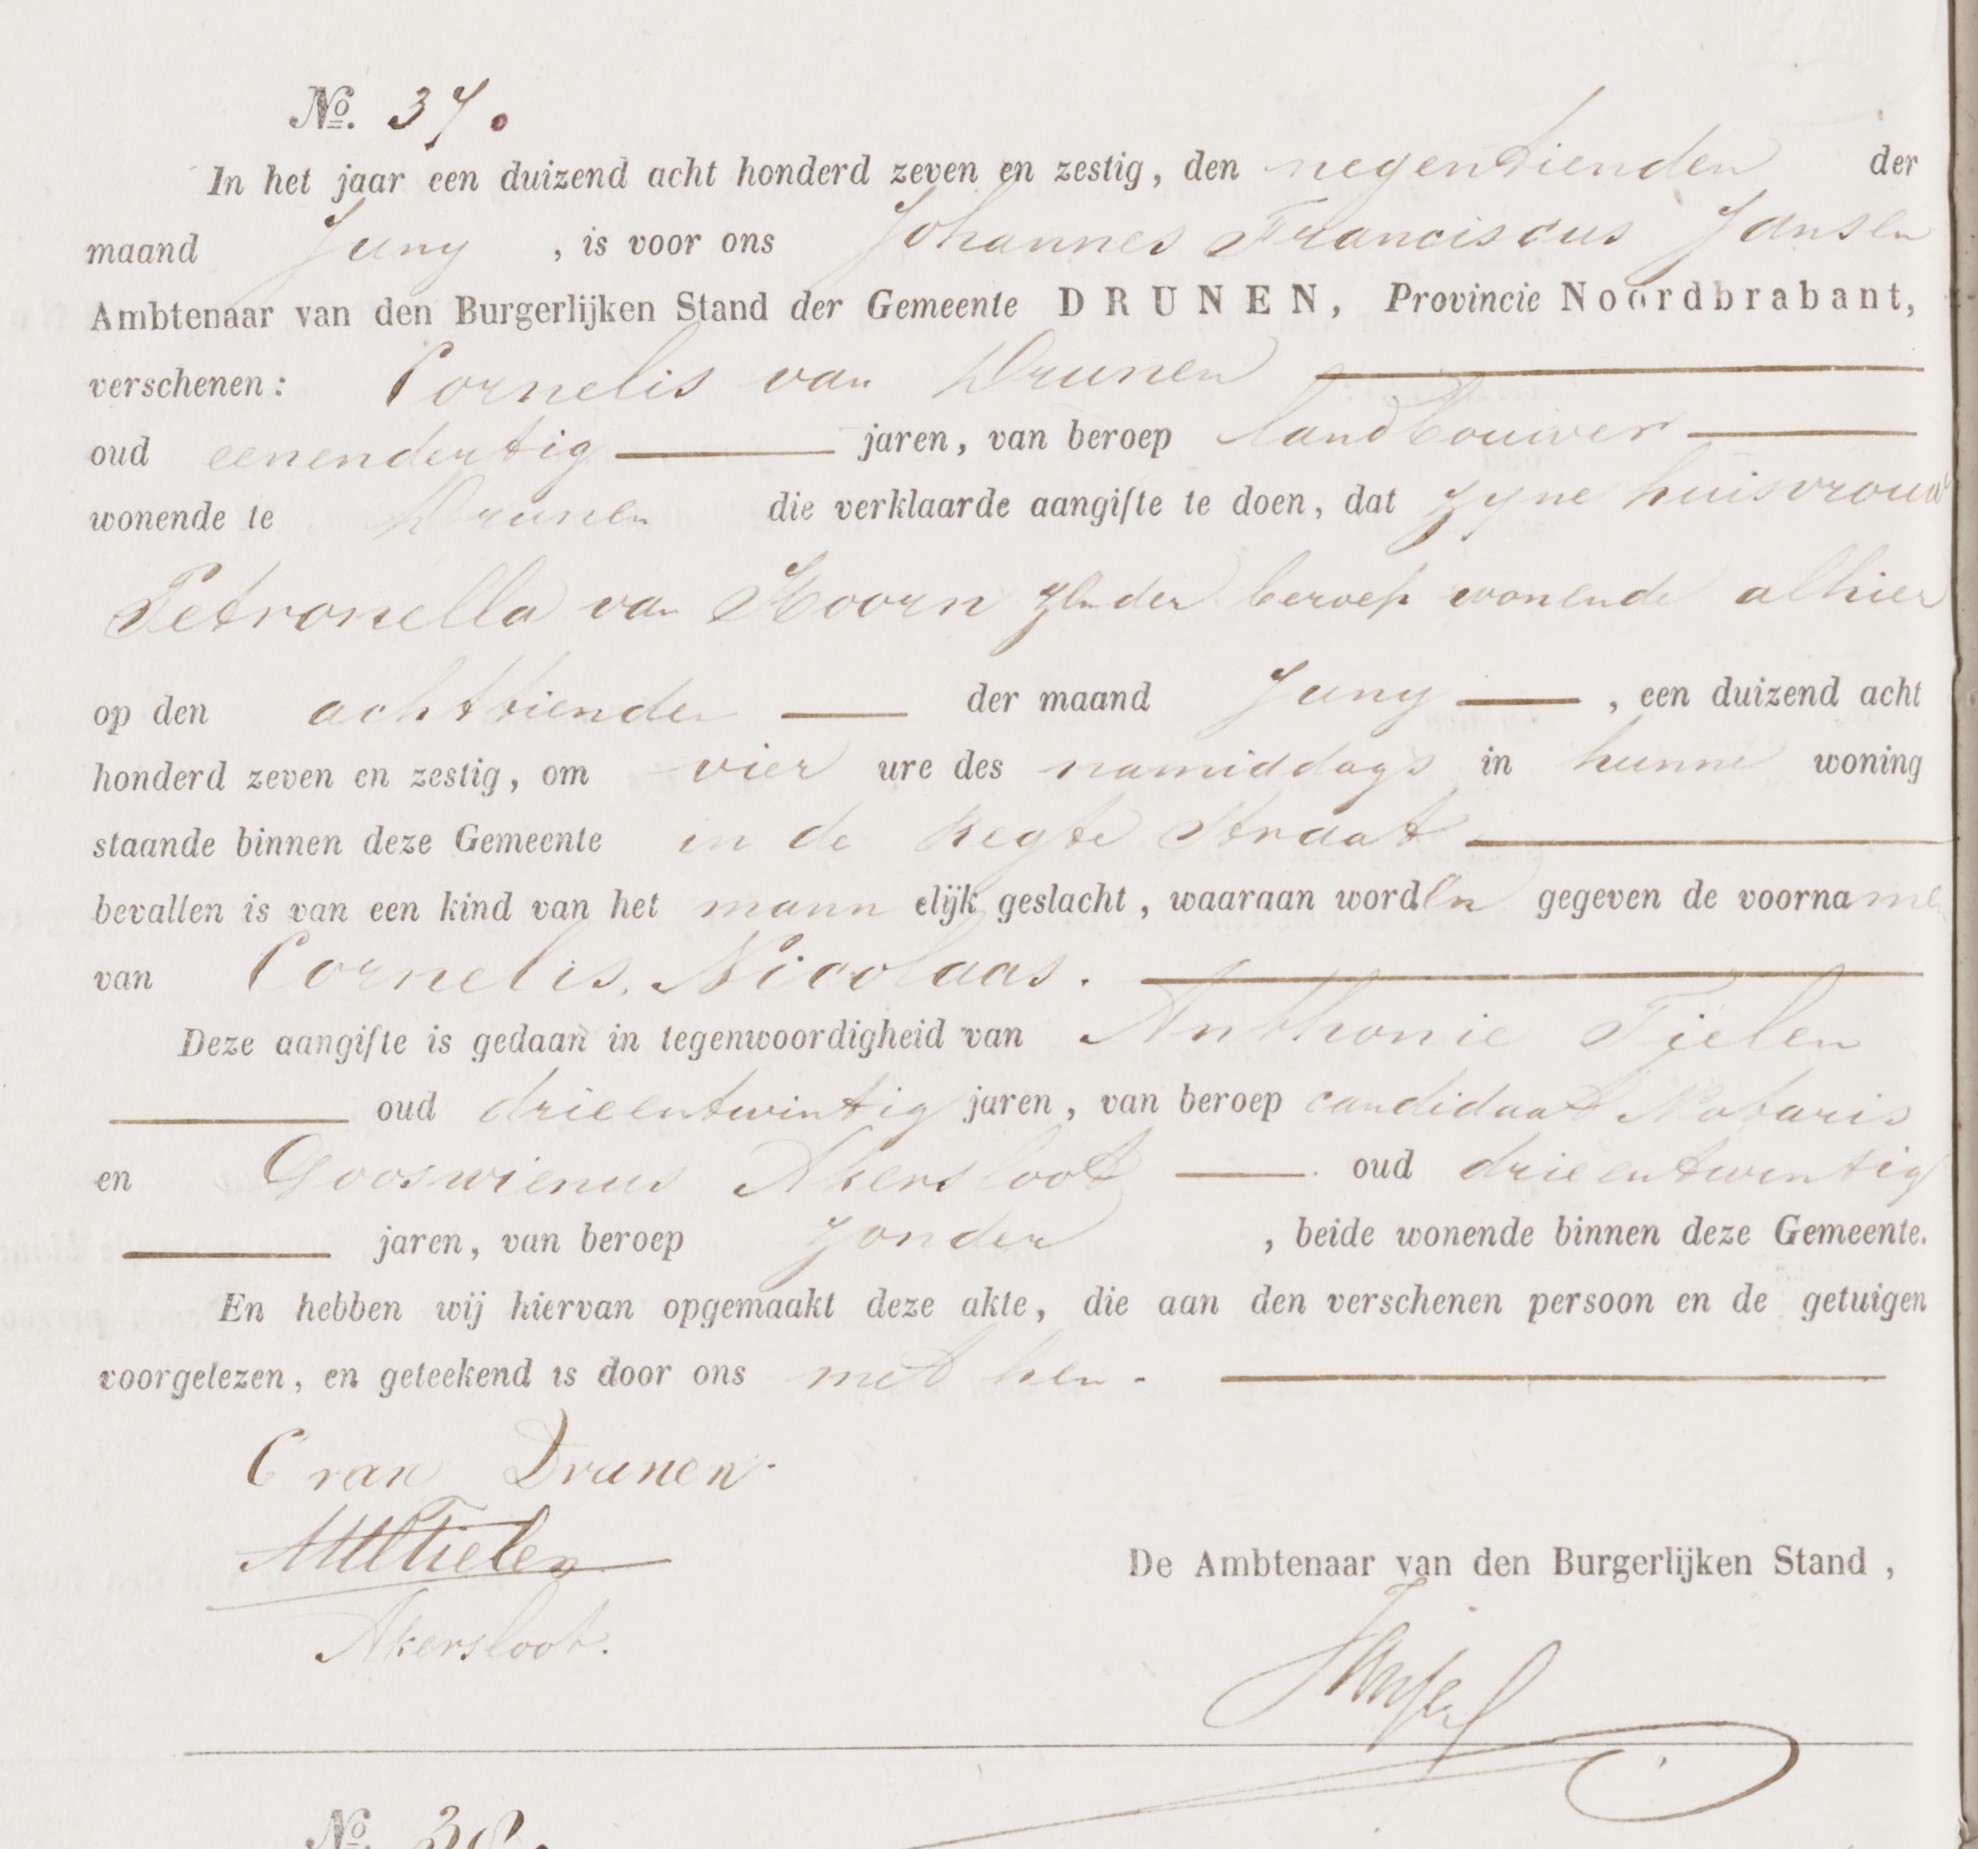 No. 37.
In het jaar een duizend acht honderd zeven en zestig, den negentienden der
maand Juny, is voor ons Johannes Franciscus Jansen
Ambtenaar van den Burgerlijken Stand der Gemeente DRUNEN, Provincie Noordbrabant,
verschenen: Cornelis van Drunen
oud eenendertig jaren, van beroep landbouwer
wonende te Drunen die verklaarde aangifte te doen, dat zyne huisvrouw
Petronella van Hoorn zonder beroep wonende alhier
op den achttienden der maand Juny, een duizend acht
honderd zeven en zestig, om vier ure des namiddags in hunne woning
staande binnen deze Gemeente in de Regte Straat
bevallen is van een kind van het mannelijk geslacht, waaraan worden gegeven de voornamen
van Cornelis, Nicolaas.
Deze aangifte is gedaan in tegenwoordigheid van Anthonie Tielen
oud drieentwintig jaren, van beroep candidaat Notaris
en Gooswienus Akersloot oud drieentwintig
jaren, van beroep zonder, beide wonende binnen deze Gemeente.
En hebben wij hiervan opgemaakt deze akte, die aan den verschenen persoon en de getuigen
voorgelezen, en geteekend is door ons met hen.
C van Drunen.
Tielen
De Ambtenaar van den Burgerlijken Stand,
Akersloot.
Jansen
No. 38.